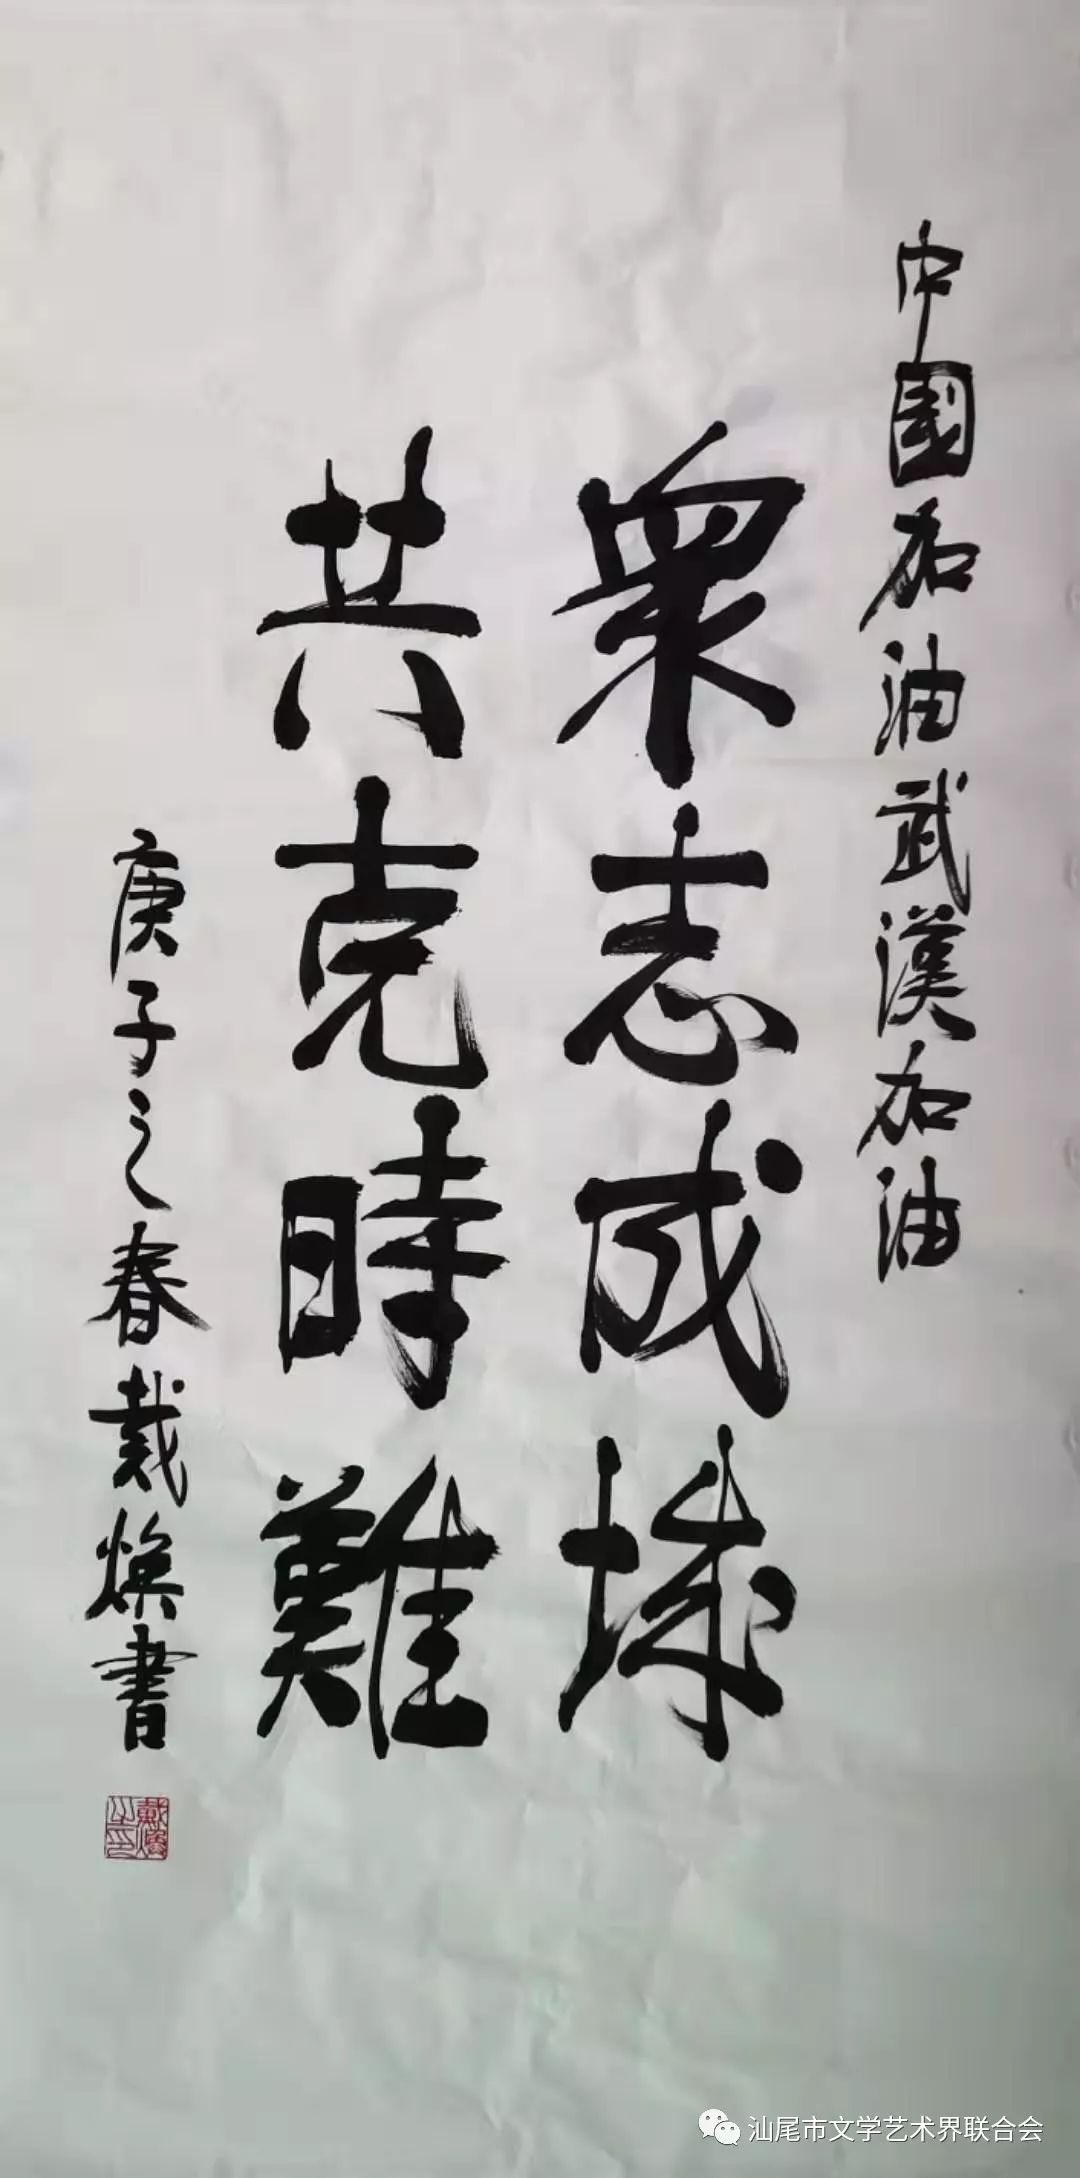 中國加油武漢加油
衆志成城
共克時難
庚子之春戴焕書
戴焕之印
汕尾市文学艺术界联合会